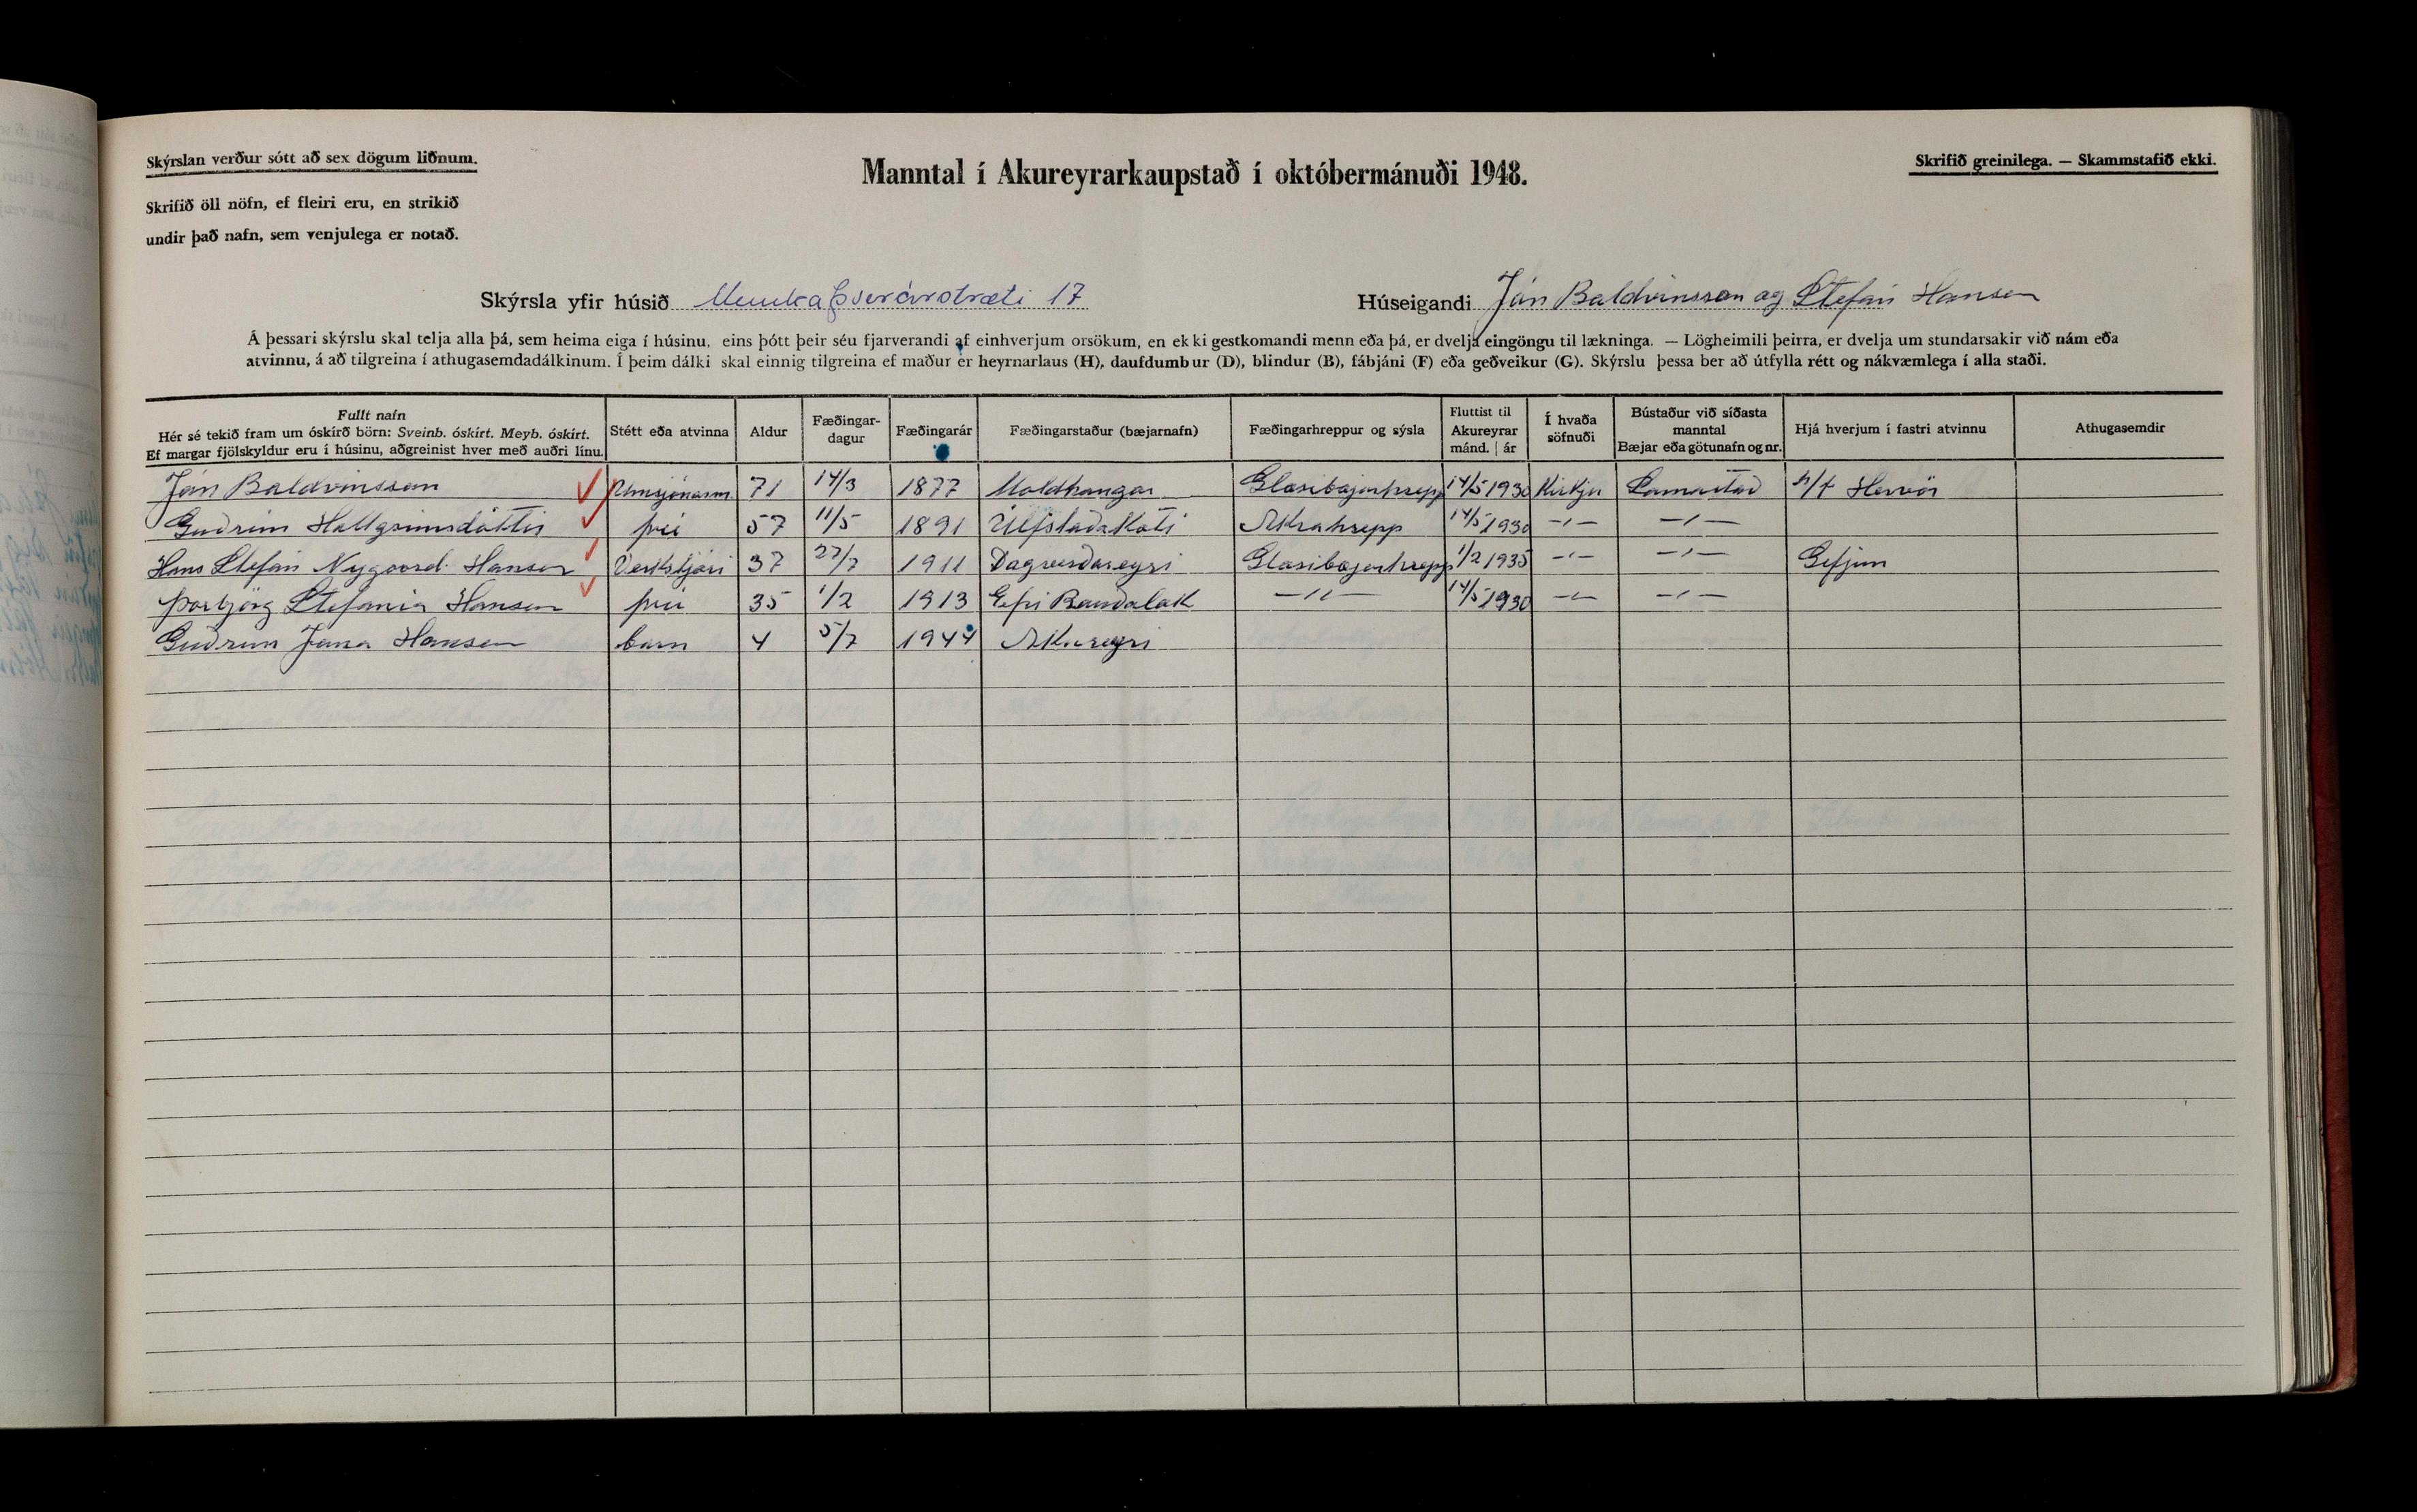 Skýrslan verður sótt að sex dögum liðnum.
Manntal í Akureyrarkaupstað í októbermánuði 1948.
Skrifið greinilega. — Skammstafið ekki.
Skrifið öll nöfn, ef fleiri eru, en strikið
undir það nafn, sem venjulega er notað.
Skýrsla yfir húsið Munkaþverárstræti 17
Húseigandi Jón Baldvinsson og Stefán Hansen
Á þessari skýrslu skal telja alla þá, sem heima eiga í húsinu, eins þótt þeir séu fjarverandi af einhverjum orsökum, en ekki gestkomandi menn eða þá, er dvelja eingöngu til lækninga. — Lögheimili þeirra, er dvelja um stundarsakir við nám eða
atvinnu, á að tilgreina í athugasemdadálkinum. Í þeim dálki skal einnig tilgreina ef maður er heyrnarlaus (H), daufdumbur (D), blindur (B), fábjáni (F) eða geðveikur (G). Skýrslu þessa ber að útfylla rétt og nákvæmlega í alla staði.
Fullt nafn
Hér sé tekið fram um óskírð börn: Sveinb. óskírt. Meyb. óskírt.
Ef margar fjölskyldur eru í húsinu, aðgreinist hver með auðri línu.
Stétt eða atvinna
Aldur
Fæðingar-
dagur
Fæðingarár
Fæðingarstaður (bæjarnafn)
Fæðingarhreppur og sýsla
Fluttist til
Akureyrar
mánd. | ár
Í hvaða
söfnuði
Bústaður við síðasta
manntal
Bæjar eða götunafn og nr.
Hjá hverjum í fastri atvinnu
Athugasemdir
Jón Baldvinsson Umsjónarm 71 14/3 1877 Moldhaugar Glæsibæjarhrepp 14/5 1930 Kirkju Samastað h/f
Guðrún Hallgrímsdóttir frú 57 11/5 1891 Úlfstaðakoti Akrahrepp 14/5 1930 —〃— —〃—
Hans Stefán Nygaard Hansen Verkstjóri 37 27/7 1911 Dagverðareyri Glæsibæjarhrepp 1/2 1935 —〃— —〃— Gefjun
Þorbjörg Stefanía Hansen frú 35 1/2 1913 Efri Rauðalæk —〃— 14/5 1930 —〃— —〃—
Guðrún Jana Hansen barn 4 5/7 1944 Akureyri